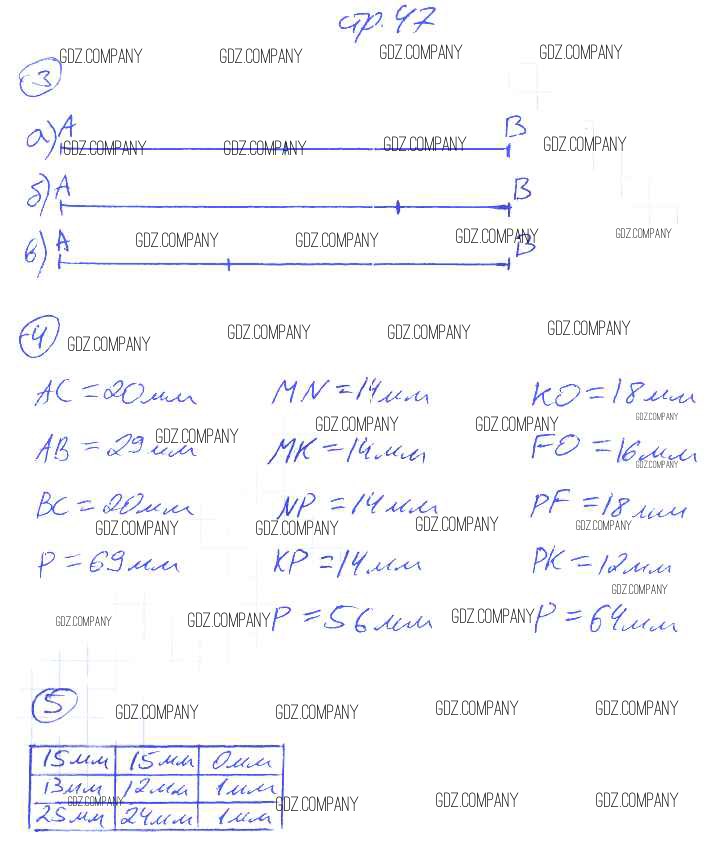 стр. 47
GDZ.COMPANY GDZ.COMPANY GDZ.COMPANY GDZ.COMPANY
3
а) A B
GDZ.COMPANY GDZ.COMPANY GDZ.COMPANY GDZ.COMPANY
б) A B
GDZ.COMPANY GDZ.COMPANY GDZ.COMPANY GDZ.COMPANY
в) A B
4
GDZ.COMPANY GDZ.COMPANY GDZ.COMPANY GDZ.COMPANY
AC = 20мм MN = 14мм KO = 18мм
GDZ.COMPANY GDZ.COMPANY GDZ.COMPANY GDZ.COMPANY
AB = 29мм MK = 14мм FO = 16мм
GDZ.COMPANY
BC = 20мм NP = 14мм PF = 18мм
GDZ.COMPANY GDZ.COMPANY GDZ.COMPANY GDZ.COMPANY
P = 69мм KP = 14мм PK = 12мм
GDZ.COMPANY
GDZ.COMPANY GDZ.COMPANY P = 56мм GDZ.COMPANY P = 64мм
5
GDZ.COMPANY GDZ.COMPANY GDZ.COMPANY GDZ.COMPANY
15мм 15мм 0мм
13мм 12мм 1мм
GDZ.COMPANY GDZ.COMPANY GDZ.COMPANY GDZ.COMPANY
25мм 24мм 1мм